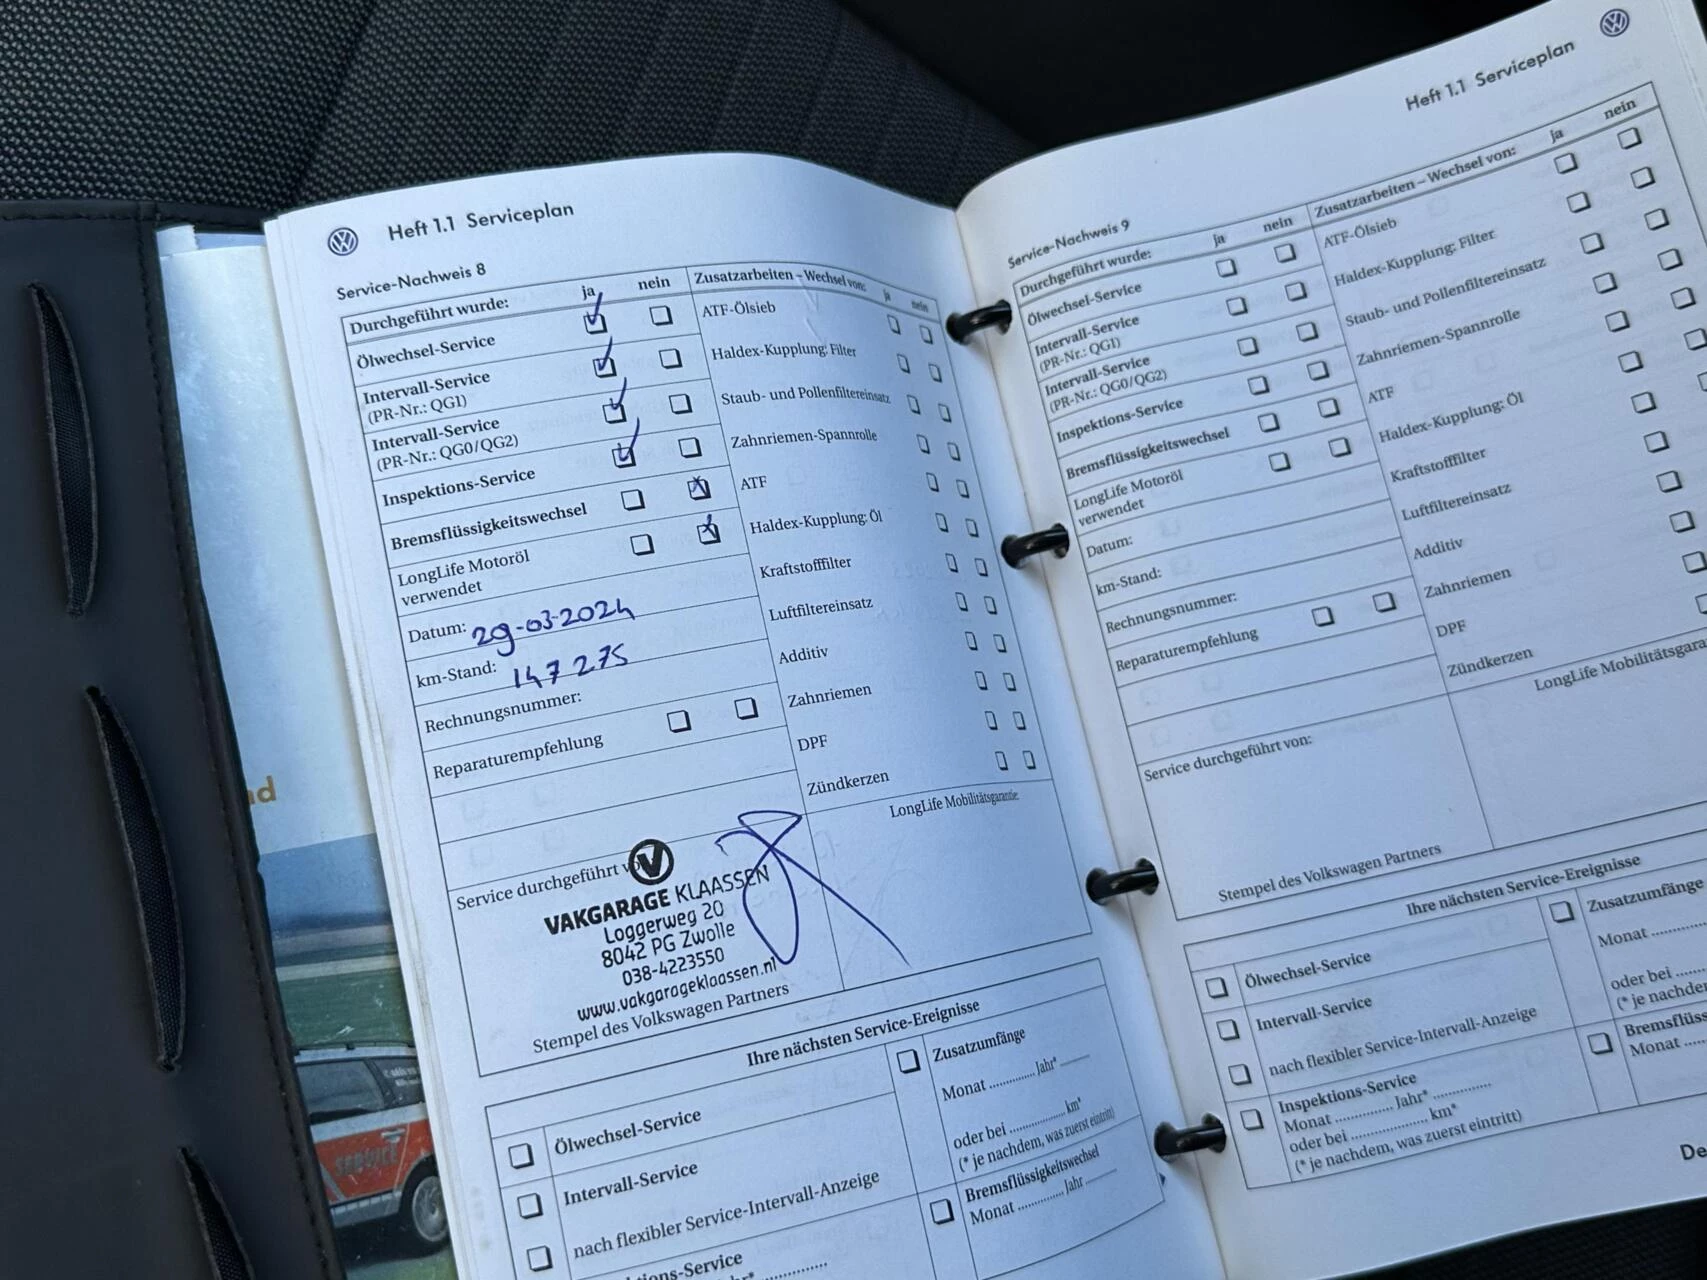 Heft 1.1 Serviceplan
Service-Nachweis 8
Durchgeführt wurde: ja nein
Ölwechsel-Service
Intervall-Service
(PR-Nr.: QG1)
Intervall-Service
(PR-Nr.: QG0/QG2)
Inspektions-Service
Bremsflüssigkeitswechsel
LongLife Motoröl
verwendet
Datum: 29-03-2024
km-Stand: 147 275
Rechnungsnummer:
Reparaturempfehlung
Zusatzarbeiten – Wechsel von: ja nein
ATF-Ölsieb
Haldex-Kupplung: Filter
Staub- und Pollenfiltereinsatz
Zahnriemen-Spannrolle
ATF
Haldex-Kupplung: Öl
Kraftstofffilter
Luftfiltereinsatz
Additiv
Zahnriemen
DPF
Zündkerzen
LongLife Mobilitätsgarantie:
Service durchgeführt
VAKGARAGE KLAASSEN
Loggerweg 20
8042 PG Zwolle
038-4223550
www.vakgarageklaassen.nl
Stempel des Volkswagen Partners
Ihre nächsten Service-Ereignisse
Ölwechsel-Service
Intervall-Service
nach flexibler Service-Intervall-Anzeige
Zusatzumfänge
Monat .............. Jahr* ..........
oder bei .................. km*
(* je nachdem, was zuerst eintritt)
Bremsflüssigkeitswechsel
Monat .............. Jahr ..........
Heft 1.1 Serviceplan
Service-Nachweis 9
Durchgeführt wurde: ja nein
Ölwechsel-Service
Intervall-Service
(PR-Nr.: QG1)
Intervall-Service
(PR-Nr.: QG0/QG2)
Inspektions-Service
Bremsflüssigkeitswechsel
LongLife Motoröl
verwendet
Datum:
km-Stand:
Rechnungsnummer:
Reparaturempfehlung
Zusatzarbeiten – Wechsel von: ja nein
ATF-Ölsieb
Haldex-Kupplung: Filter
Staub- und Pollenfiltereinsatz
Zahnriemen-Spannrolle
ATF
Haldex-Kupplung: Öl
Kraftstofffilter
Luftfiltereinsatz
Additiv
Zahnriemen
DPF
Zündkerzen
LongLife
Service durchgeführt von:
Stempel des Volkswagen Partners
Ihre nächsten Service-Ereignisse
Ölwechsel-Service
Intervall-Service
nach flexibler Service-Intervall-Anzeige
Inspektions-Service
Monat .............. Jahr* ..............
oder bei .................. km*
(* je nachdem, was zuerst eintritt)
Zusatzumfänge
Monat ..............
oder bei
SERVICE